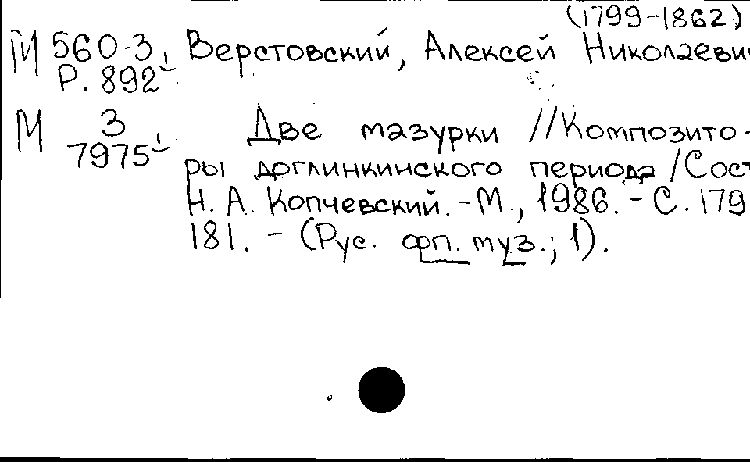 (1799-1862)
М 560-3, Верстовский, Алексей Николаеви
Р. 892
М 3 Две мазурки // Композито-
7975 ры доглинкинского периода / Сост
Н. А. Копчевский. - М., 1986. - С. 179
181. - (Рус. фп. муз.; 1).